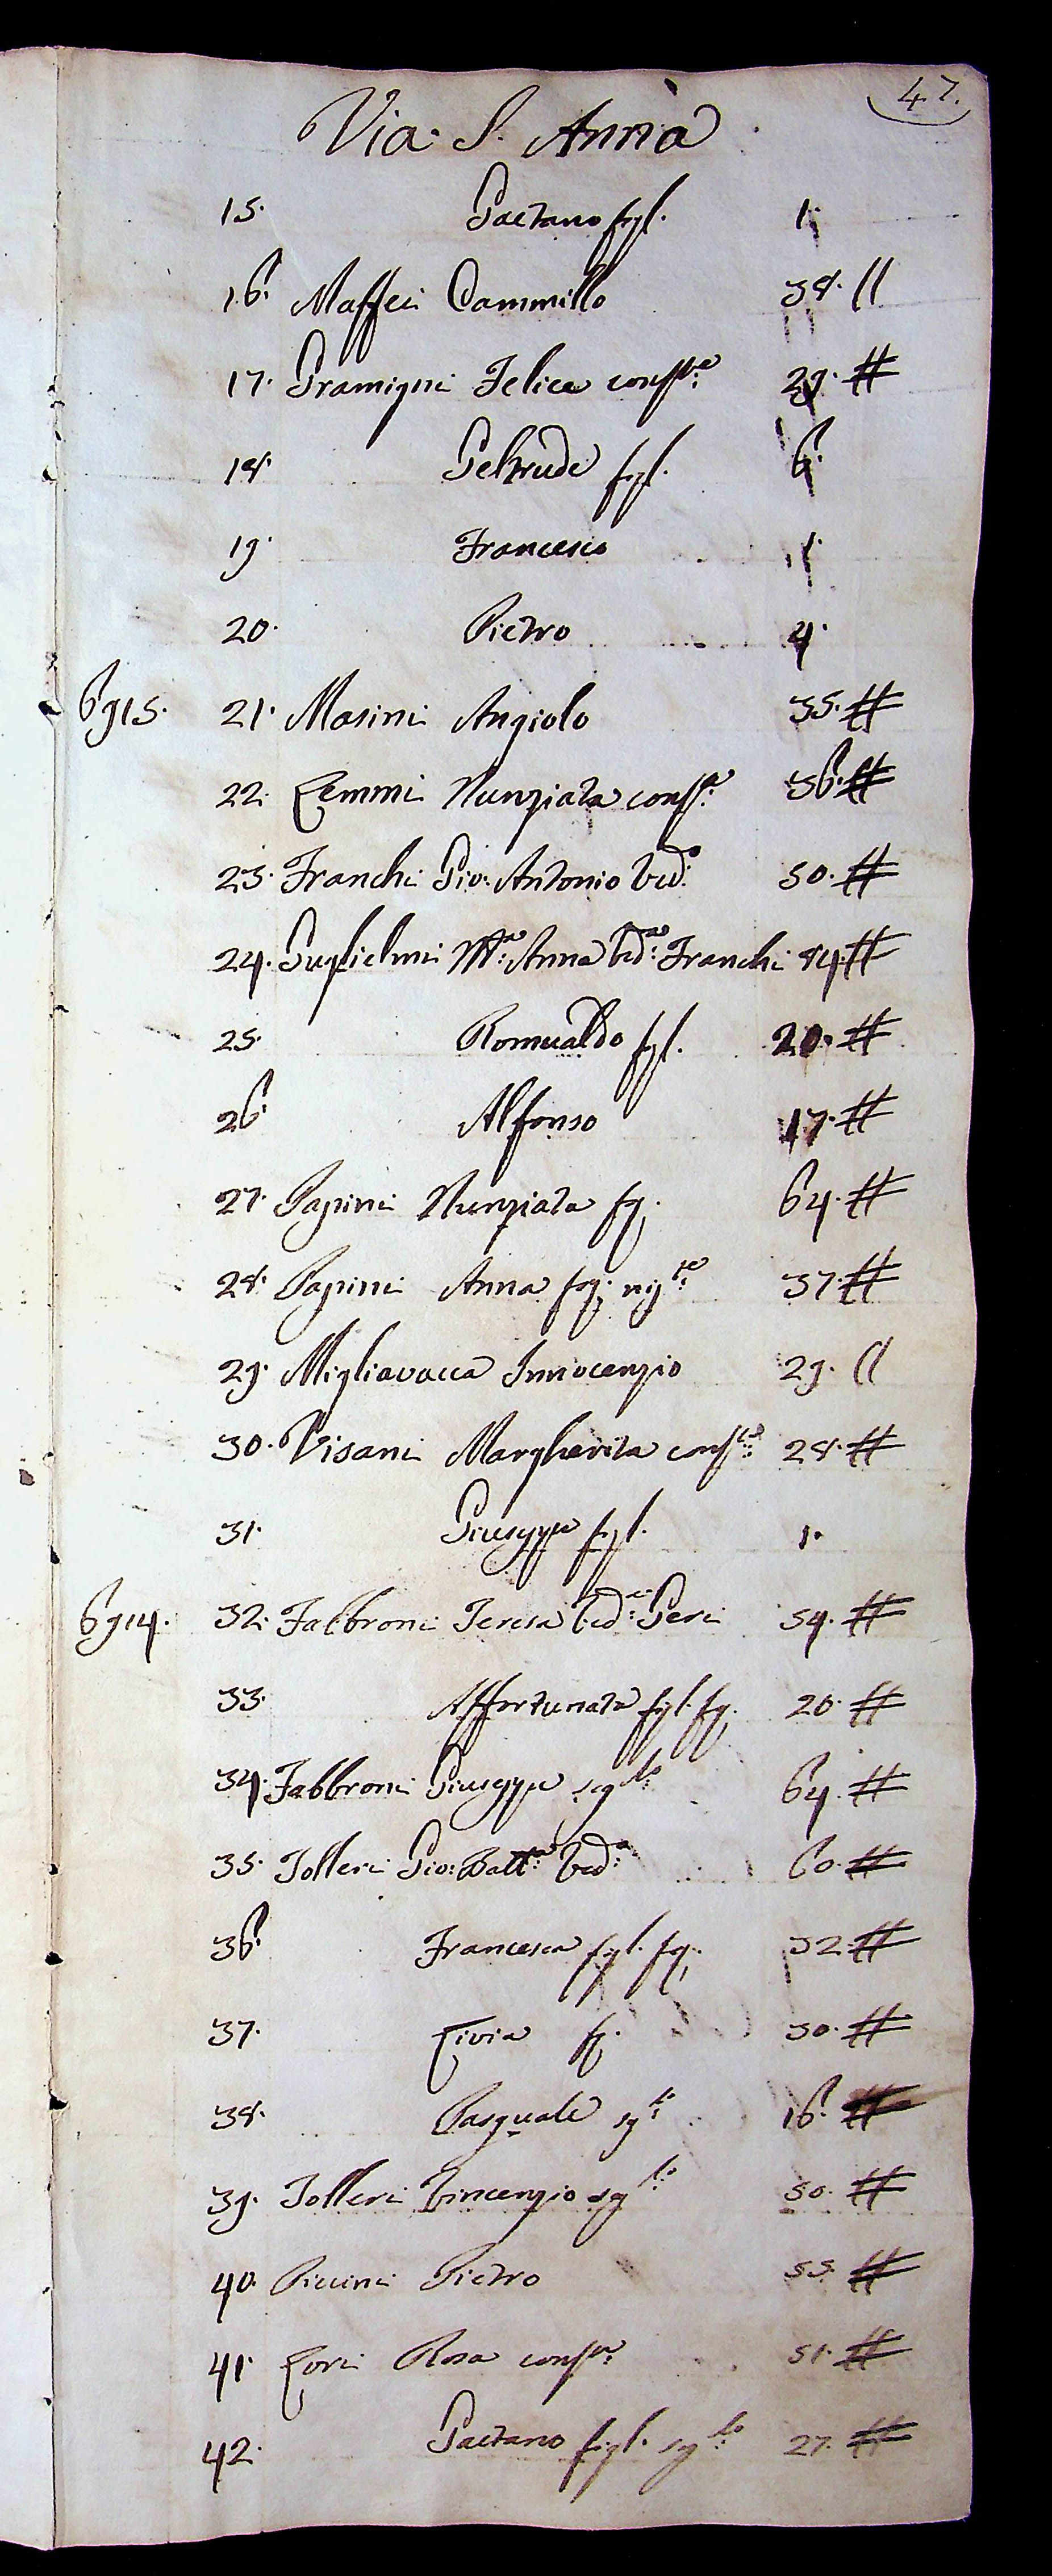 47.
Via S. Anna
15. Gaetano figl. 1.
16. Maffei Cammillo 38. //
17. Gramigni Felice cons.te 29. #
18. Geltrude figl. 6.
19. Francesco 1.
20. Pietro 4.
6915. 21. Masini Angiolo 35. #
22. Lemmi Nunziata cons.e 36. #
23. Franchi Gio: Antonio Ved.o 50. #
24. Guglielmi M.a Anna Ved.a Franchi 84. #
25. Romualdo figl. 20. #
26. Alfonso 17. #
27. Papini Nunziata fg. 64. #
28. Papini Anna fg. nij.te 37. #
29. Migliavacca Innocenzio 29. //
30. Visani Margherita cons.te 28. #
31. Giuseppe figl. 1.
6914. 32. Fabbroni Teresa Ved.a Geri 54. #
33. Affortunata figl. fg. 20. #
34. Fabbroni Giuseppe sg.lo 64. #
35. Tolleri Gio: Batt.a Ved.o 60. #
36. Francesca figl. fg. 32. #
37. Livia fg. 30. #
38. Pasquale sg.lo 16. #
39. Tolleri Vincenzio sg.lo 50. #
40. Piccini Pietro 55. #
41. Lori Rosa cons.e 51. #
42. Gaetano figl. sg.lo 27. #